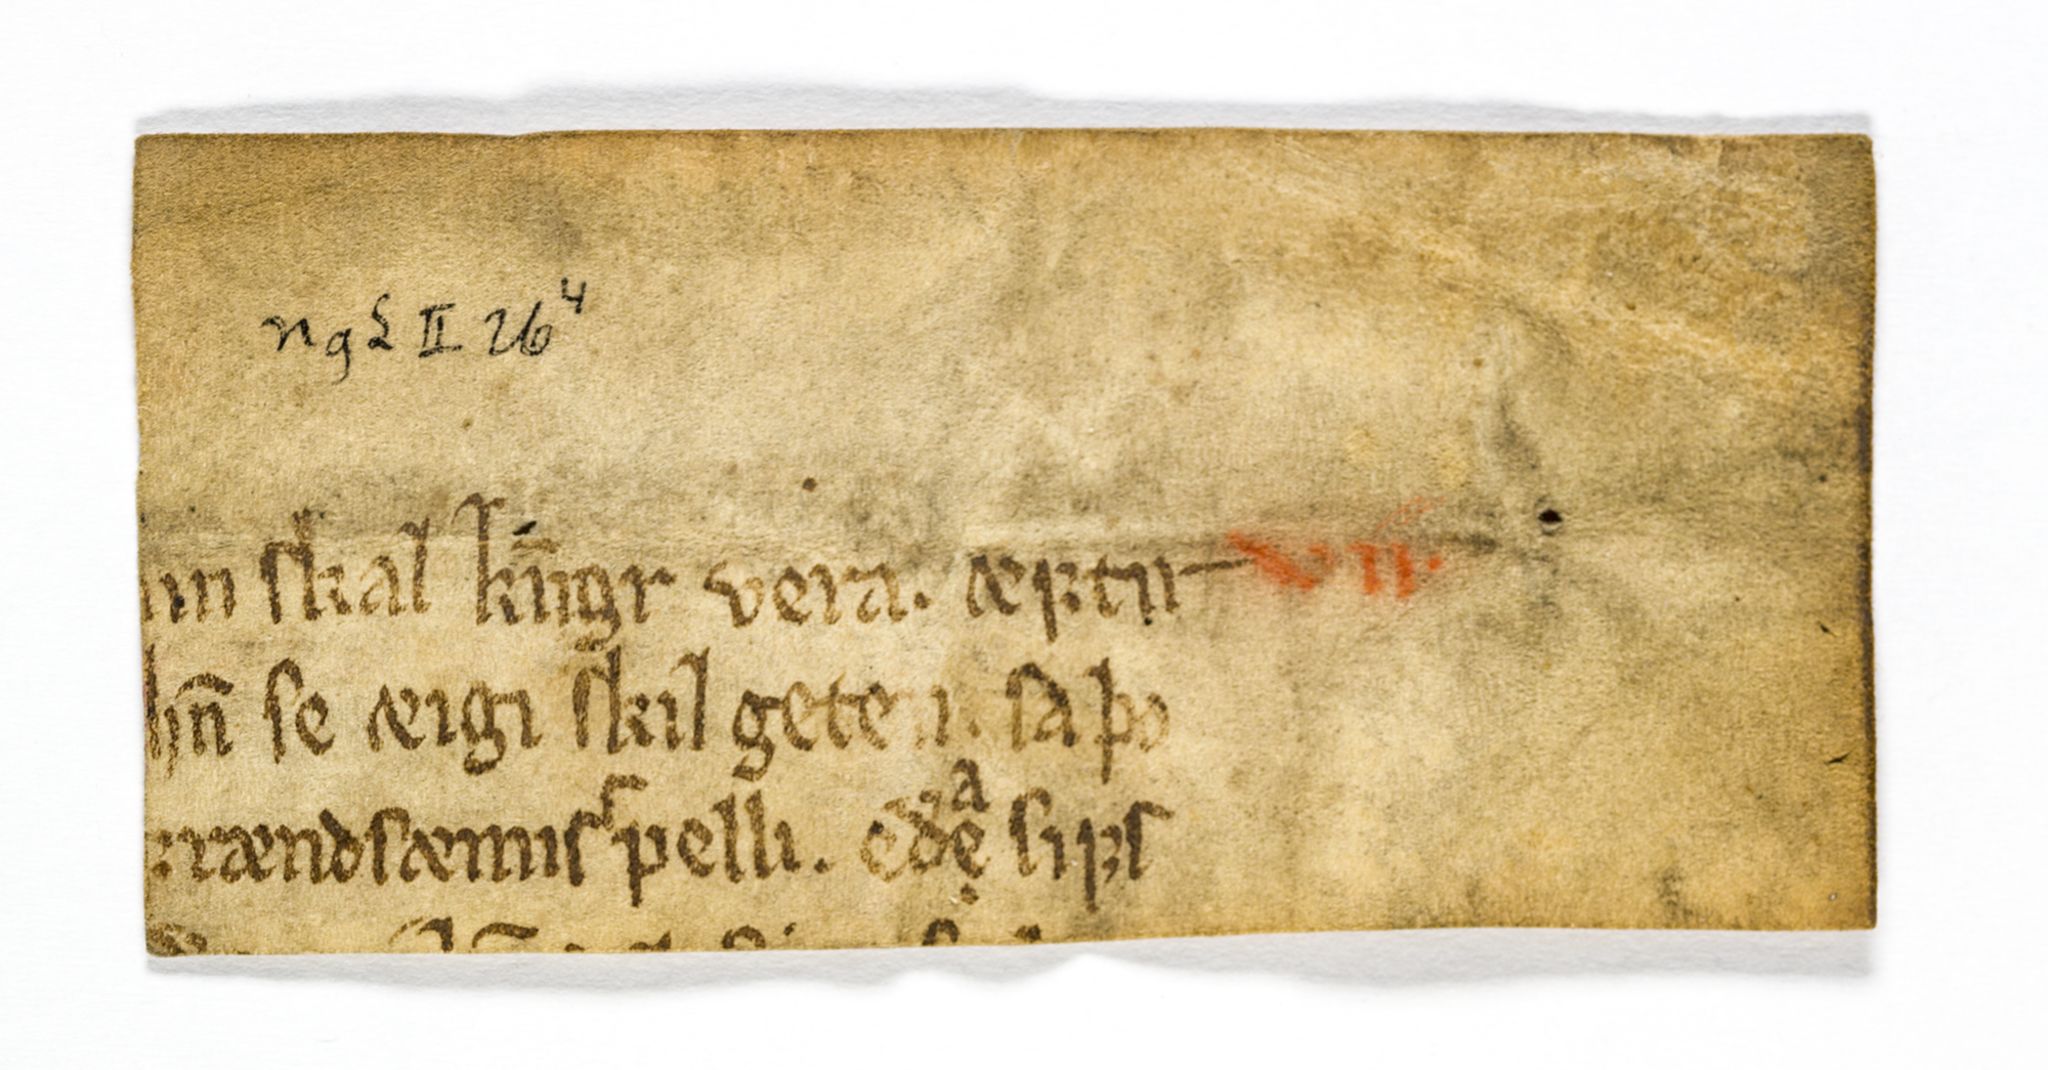 NgL II 26⁴
nn skal kūngr vera. æꝼtir VII.
hn̄ se æigi skil gete i. sa þo
rændsæmis spelli. eða siꝼs